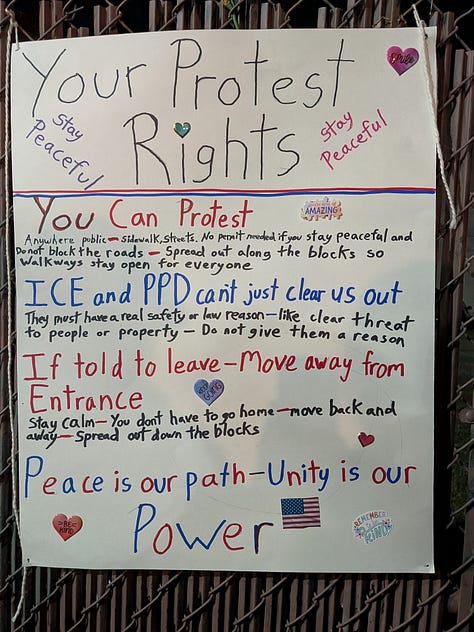 Your Protest
Rights
Smile
Stay
Peaceful
Stay
Peaceful
You Can Protest
AMAZING
Anywhere public — sidewalk, streets. No permit needed if you stay peaceful and
Do not block the roads — Spread out along the blocks so
Walkways stay open for everyone
ICE and PPD can't just clear us out
They must have a real safety or law reason — like clear threat
to people or property — Do not give them a reason
If told to leave — Move away from
Entrance
Stay Calm — You dont have to go home — move back and
away — Spread out down the blocks
Peace is our path — Unity is our
Power
BE
KIND
REMEMBER
KIND